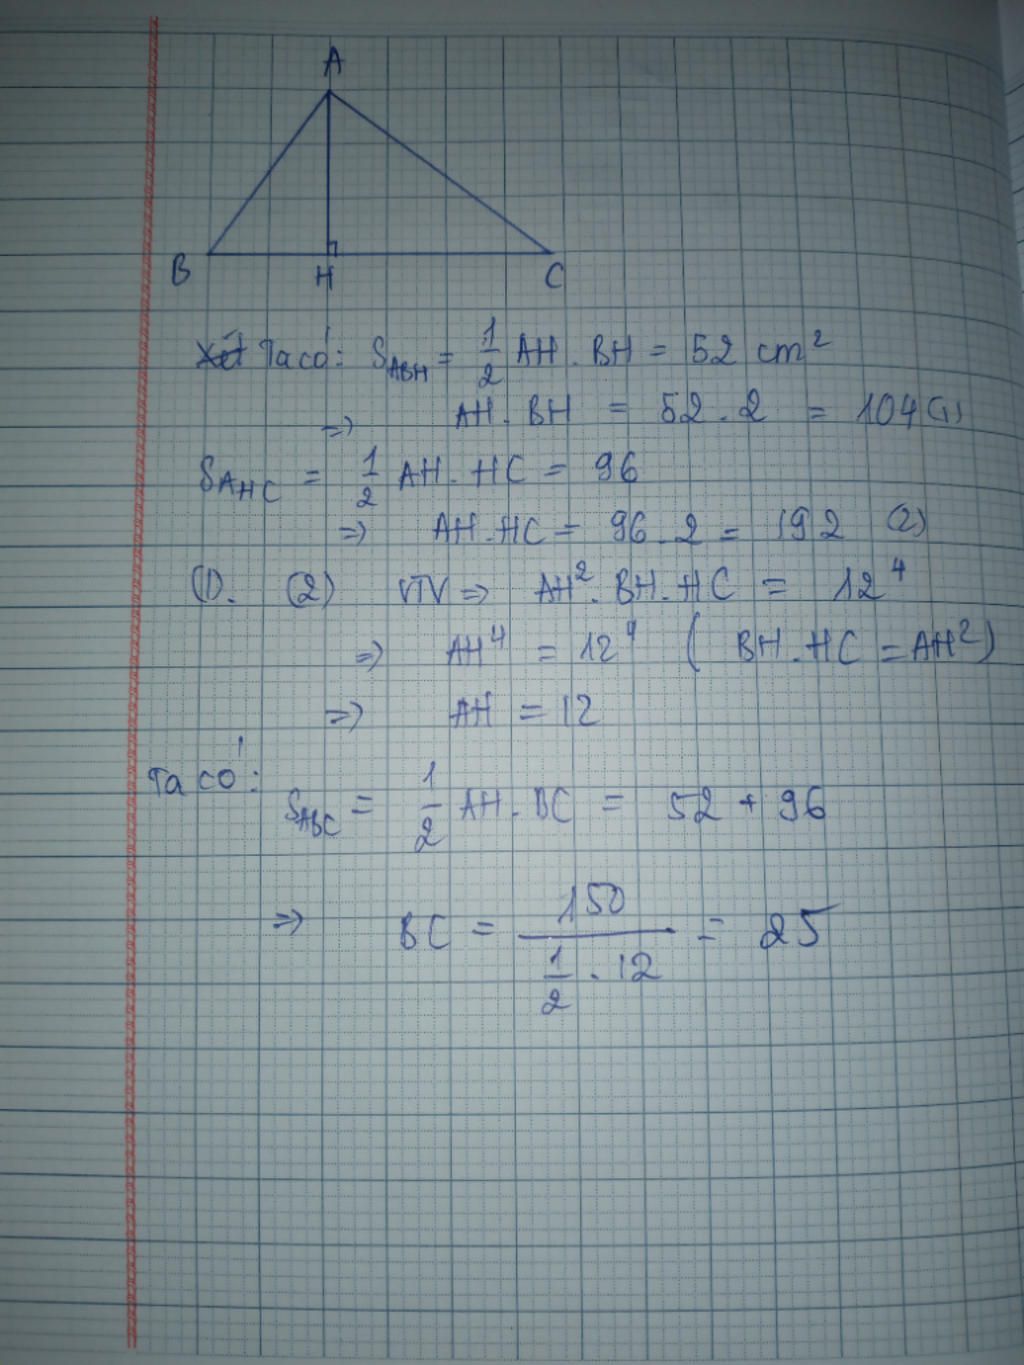 A
B H C
Ta có: S_ABH = 1/2 AH . BH = 52 cm²
=> AH . BH = 52 . 2 = 104 (1)
S_AHC = 1/2 AH . HC = 96
=> AH . HC = 96 . 2 = 192 (2)
(1). (2) VTV => AH² . BH . HC = 12⁴
=> AH⁴ = 12⁴ ( BH . HC = AH² )
=> AH = 12
Ta có:
S_ABC = 1/2 AH . BC = 52 + 96
=> BC = 150 / (1/2 . 12) = 25